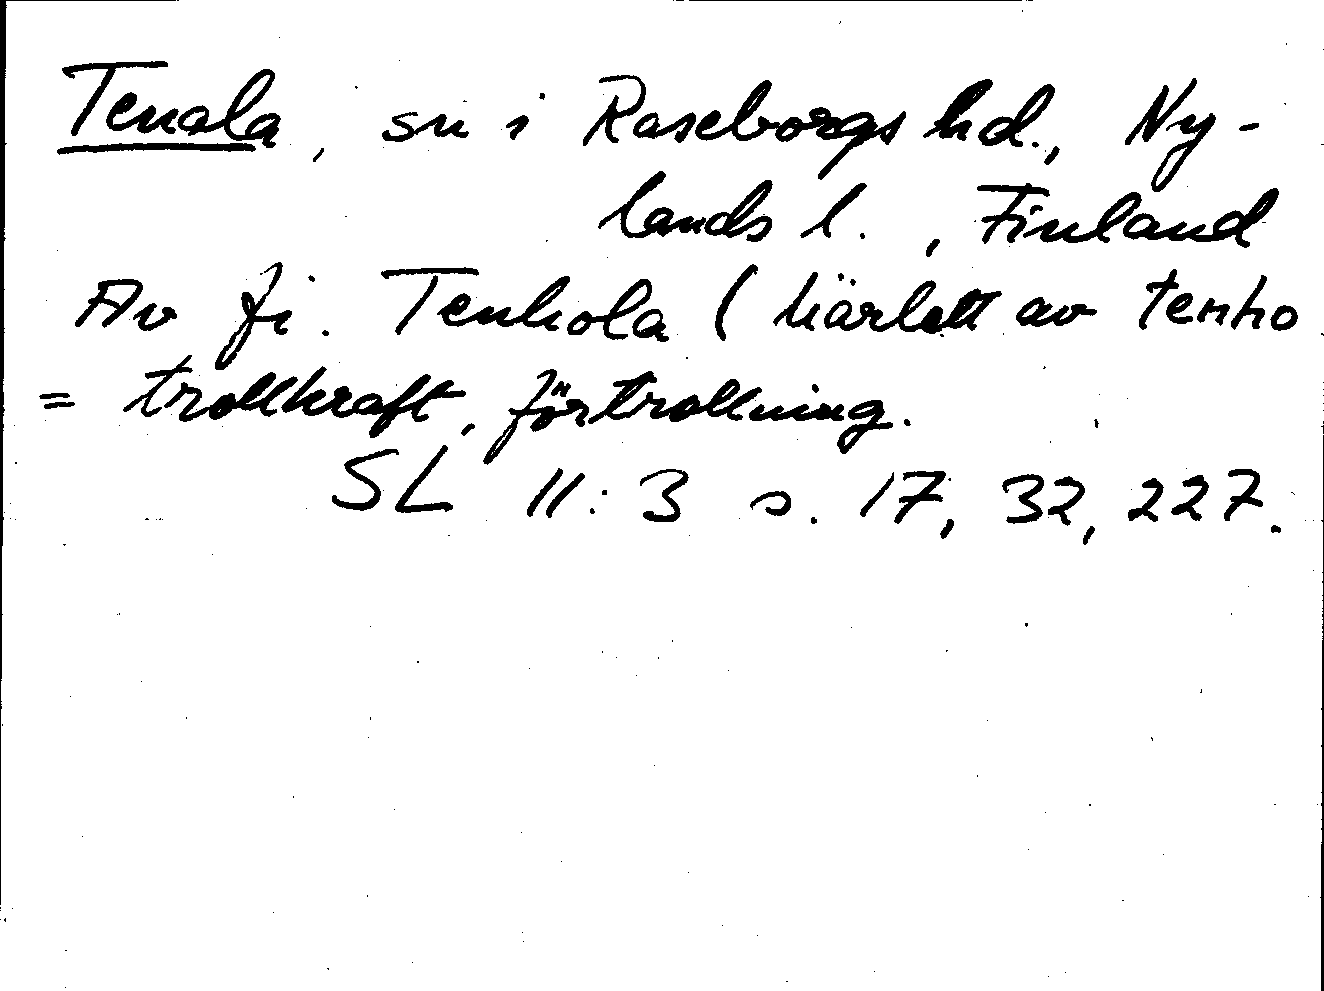 Tenala, sn i Raseborgs hd., Ny-
lands l., Finland
Av fi. Tenhola (härlett av tenho
= trollkraft, förtrollning.
SL 11:3 s. 17, 32, 227.